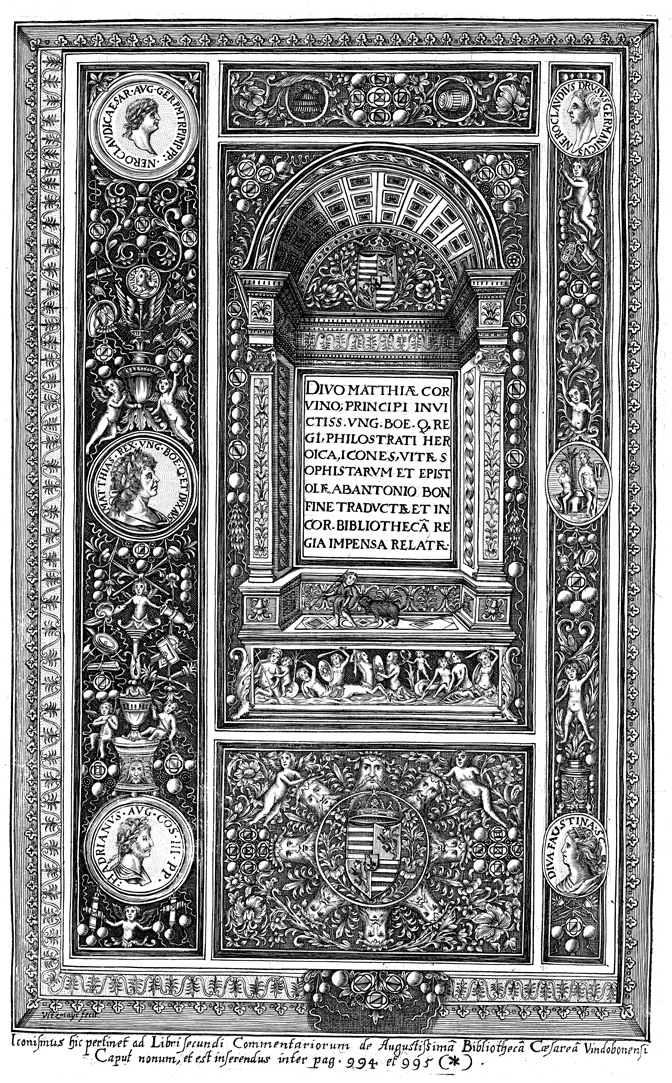 NERO·CLAUDI·CAESAR·AVG·GER·P·M·TR·P·IMP·PP·
NERO CLAVDIVS DRVSVS GERMANICVS
DIVO MATTHIÆ COR
VINO; PRINCIPI INVI
CTISS. VNG. BOE. Q, RE
GI, PHILOSTRATI HER
OICA, ICONES, VITÆ S
OPHISTARVM ET EPIST
OLÆ AB ANTONIO BON
FINE TRADVCTÆ ET IN
COR. BIBLIOTHECÃ RE
GIA IMPENSA RELATÆ·
MATTHIAS REX VNG·BOE·Q·ET
HADRIANVS·AVG·COS·III·PP·
DIVA FAVSTINA S C
fecit
Iconismus hic pertinet ad Libri secundi Commentariorum de Augustissimâ Bibliothecâ Cæsareâ Vindobonensi
Caput nonum, et est inserendus inter pag. 994 et 995 (*).